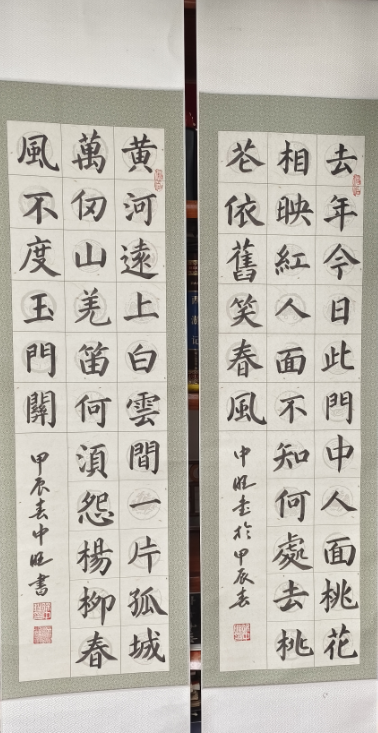 去年今日此門中人面桃花
相映紅人面不知何處去桃
芲依舊笑春風
中旺書於甲辰春
黄河遠上白雲間一片孤城
萬仞山羌笛何湏怨楊柳春
風不度玉門關
甲辰春中旺書